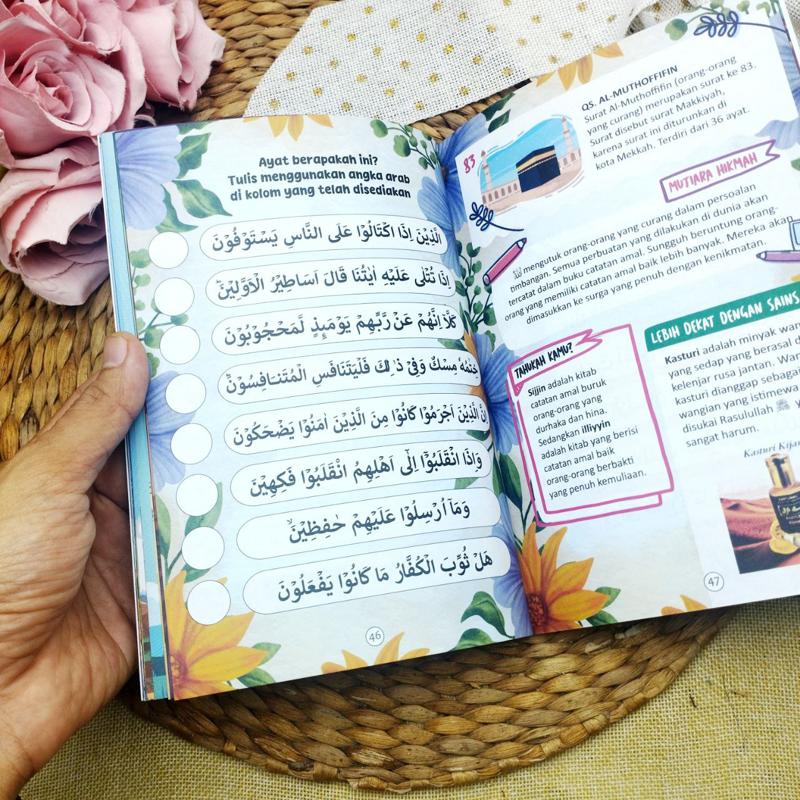 Ayat berapakah ini?
Tulis menggunakan angka arab
di kolom yang telah disediakan
الَّذِيْنَ اِذَا اكْتَالُوْا عَلَى النَّاسِ يَسْتَوْفُوْنَ
اِذَا تُتْلٰى عَلَيْهِ اٰيٰتُنَا قَالَ اَسَاطِيْرُ الْاَوَّلِيْنَۗ
كَلَّآ اِنَّهُمْ عَنْ رَّبِّهِمْ يَوْمَىِٕذٍ لَّمَحْجُوْبُوْنَ
خِتٰمُهٗ مِسْكٌ وَفِيْ ذٰلِكَ فَلْيَتَنَافَسِ الْمُتَنٰفِسُوْنَ
اِنَّ الَّذِيْنَ اَجْرَمُوْا كَانُوْا مِنَ الَّذِيْنَ اٰمَنُوْا يَضْحَكُوْنَ
وَاِذَا انْقَلَبُوْٓا اِلٰٓى اَهْلِهِمُ انْقَلَبُوْا فَكِهِيْنَ
وَمَآ اُرْسِلُوْا عَلَيْهِمْ حٰفِظِيْنَۙ
هَلْ ثُوِّبَ الْكُفَّارُ مَا كَانُوْا يَفْعَلُوْنَ
46
83
QS. AL-MUTHOFFIFIN
Surat Al-Muthoffifin (orang-orang
yang curang) merupakan surat ke 83.
Surat disebut surat Makkiyah,
karena surat ini diturunkan di
kota Mekkah. Terdiri dari 36 ayat.
MUTIARA HIKMAH
mengutuk orang-orang yang curang dalam persoalan
timbangan. Semua perbuatan yang dilakukan di dunia akan
tercatat dalam buku catatan amal. Sungguh beruntung orang-
orang yang memiliki catatan amal baik lebih banyak. Mereka akan
dimasukkan ke surga yang penuh dengan kenikmatan.
TAHUKAH KAMU?
Sijjin adalah kitab
catatan amal buruk
orang-orang yang
durhaka dan hina.
Sedangkan illiyyin
adalah kitab yang berisi
catatan amal baik
orang-orang berbakti
yang penuh kemuliaan.
LEBIH DEKAT DENGAN SAINS
Kasturi adalah minyak
yang sedap yang berasal
kelenjar rusa jantan.
kasturi dianggap sebagai
wangian yang istimewa
disukai Rasulullah ﷺ
sangat harum.
Kasturi
47